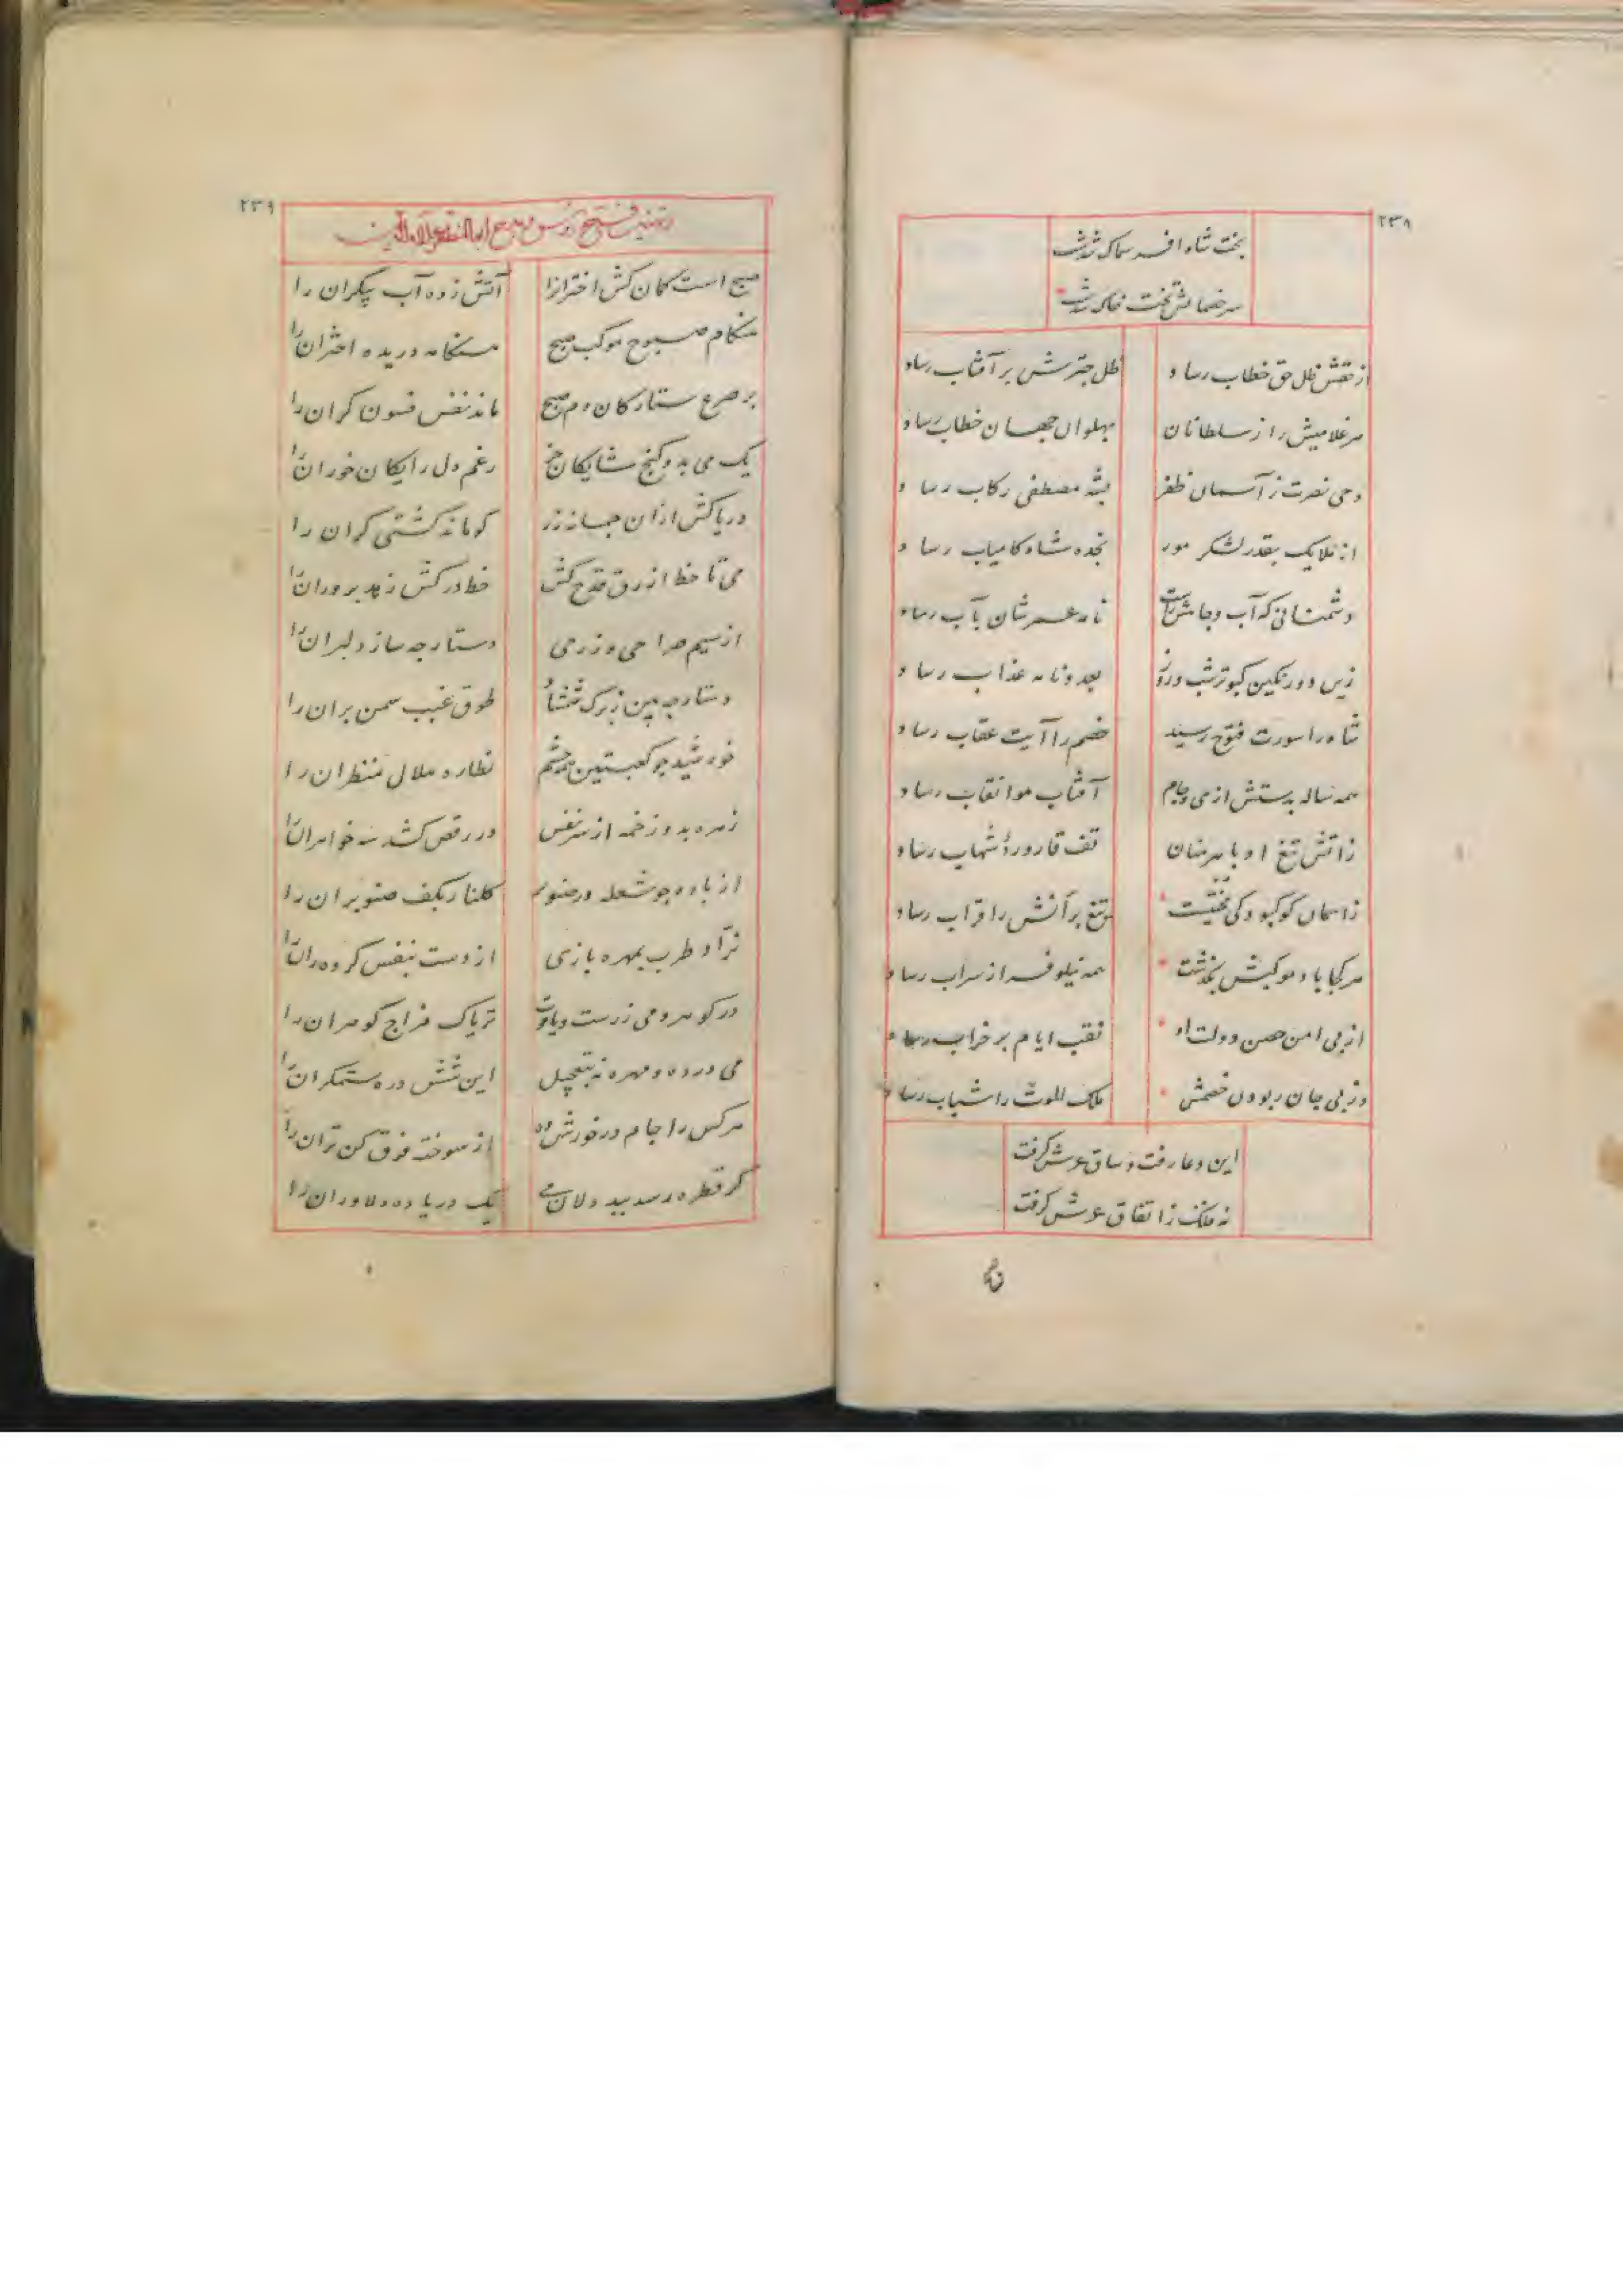 ۲۳۸
بخت شاه افسر سماک شدش
سر خصمانش تخت خاک شدش
از نقش ظل حق خطاب رساد
ظل چترش بر آفتاب رساد
هر غلامیش را ز سلطانان
پهلوان جهان خطاب رساد
وحی نصرت ز آسمان ظفر
بشه مصطفی رکاب رساد
از ملایک بقدر لشکر مور
نجده شاه کامیاب رساد
دشمنانی که آب و جاهش راست
نامه عمرشان بآب رساد
زین دو رنگین کبوتر شب و روز
بعد و نامه عذاب رساد
شاه را سورت فتوح رسید
خصم را آیت عقاب رساد
همه ساله بدستش از می و جام
آفتاب هوا نقاب رساد
زاتش تیغ او باهرمنان
تف قارورهٔ شهاب رساد
زاسمان کو کبود کی
تیغ برانش را قراب رساد
هر کجا باد موکبش بگذشت
همه نیلوفر از سراب رساد
از پی امن حصن دولت او
نقب ایام بر خراب رساد
وز پی جان ربودن خصمش
ملک الموت را شباب رساد
این دعا رفت و ساق عرش گرفت
نه ملک ز اتفاق عرش گرفت
۲۳۹
صبح است کمان کش اختران را
آتش زده آب پیکران را
هنگام صبوح موکب صبح
هنگامه دریده اختران را
بر صرع ستارگان دم صبح
ماند نفس فسون گران را
یک می بدو گنج شایگان خر
رغم دل رایگان خوران را
دریاکش ازان چمانه زر
کوماند کشتی گران را
می تا خط ازرق قدح کش
خط درکش زهد پروران را
از سیم صراحی و زر می
دستارچه ساز دلبران را
دستارچه بین ز برک شمشاد
طوق غبب سمن بران را
خورشید چو کعبتین همه چشم
نظاره هلال منظران را
زهره بدو زخمه از سر نفس
در رقص کشد سه خواهران را
از باده چو شعله در صنوبر
گلنار بکف صنوبران را
نراد طرب بمهره بازی
از دست بنفش کرده ران را
در گوهر و می زرست و یاقوت
تریاک مزاج گوهران را
می درده و مهره نه بتعجیل
این شش دره ستمگران را
هر کس را جام درخورش ده
از سوخته فرق کن تران را
گر قطره رسد به بددلان می
یک دریا ده دلاوران را